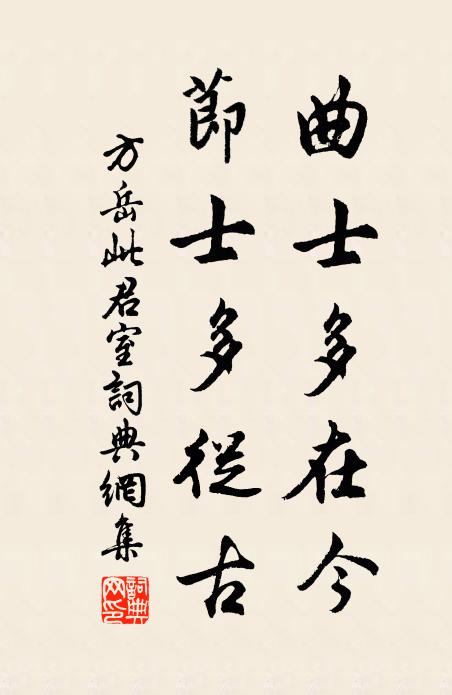 曲士多在今
節士多從古
方岳此君室詞典網集
詞典网印